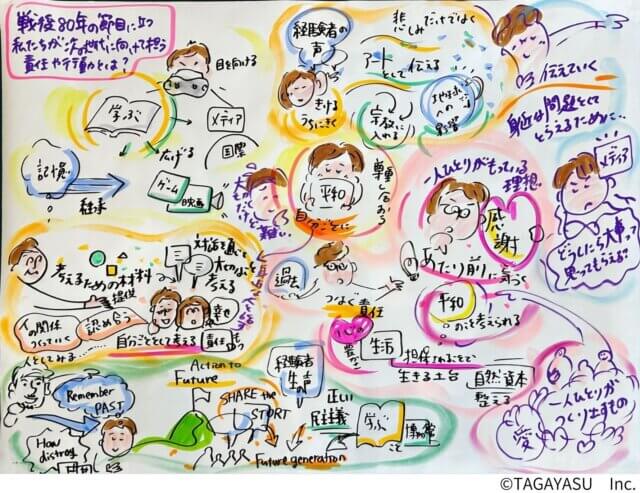 戦後80年の節目に立つ
私たちが次の世代に向けて担う
責任や行動とは？
目を向ける
学ぶ
メディア
国際
広げる
ゲーム
映画
記憶
継承
経験者の
声
きける
うちにきく
悲しみだけでなく
アート
として 伝える
手に
入れる
地球
への
影響
03 伝えていく
身近な問題として
とらえるために…
メディア
どうしたら大事って
思ってもらえる?
尊重し合う
平和
自分ごとに
難しい
一人ひとりがもっている
理想
感謝
あたり前に気づく
平和
のを考えられる
過去
つなぐ責任
心の
豊かさ
生活
担保されることで
生きる土台
自然資本
整える
一人ひとりが
つくり出すもの
愛
対話を通じて
大切なものを
考える
考えるための材料
提供
人の関係
つくっていく
認め合う
人としてみる…
自分ごととして考える
幸せ
責任
Action to
Future
Remember
PAST
How
SHARE the
START
経験者
生の声
正しい
民主主義
学ぶ
こと
博物館
Future generation
©TAGAYASU Inc.